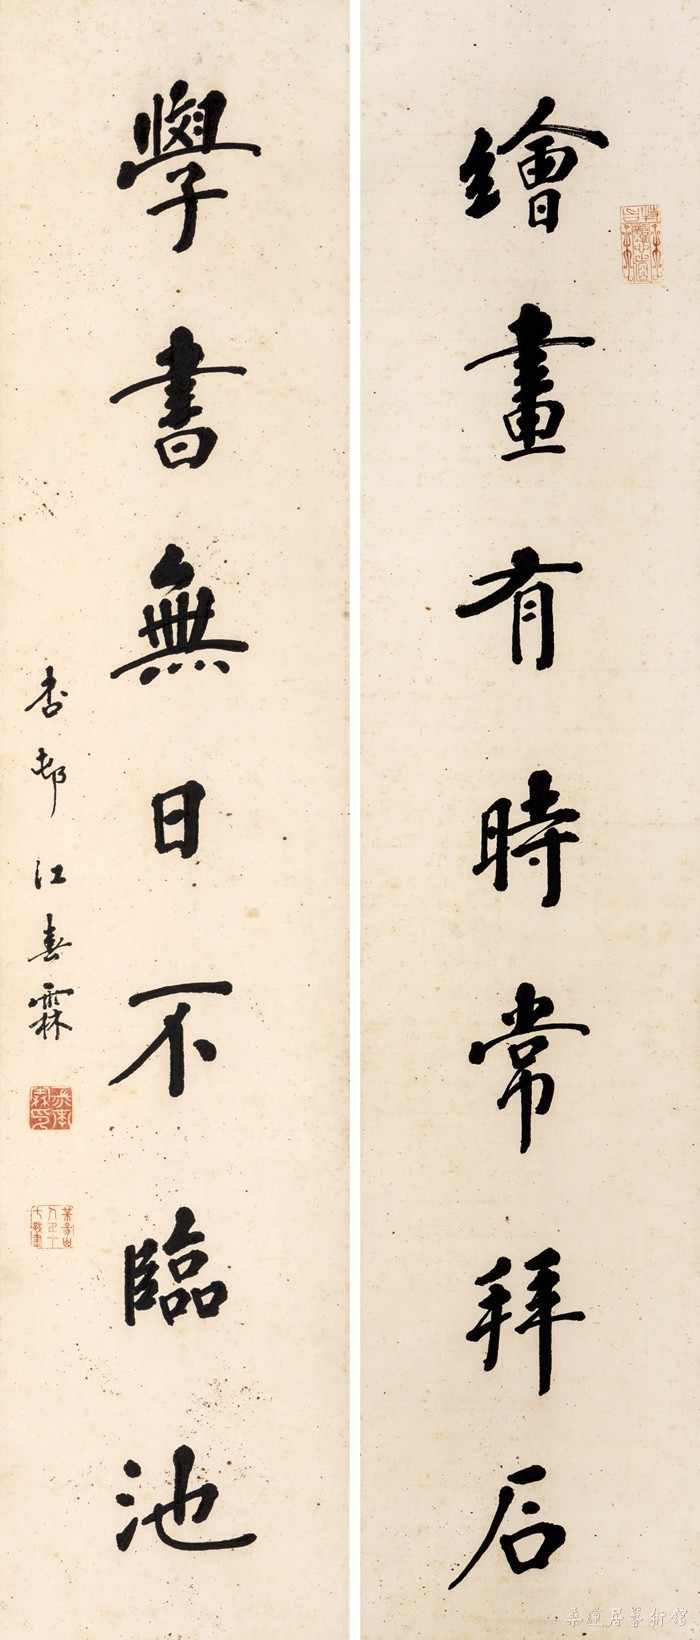 繪畫有時常拜石
學書無日不臨池
杏邨江春霖